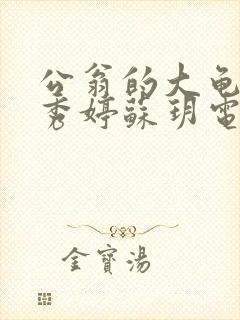 公翁的大龟
秀婷蘇玥電
金寶湯